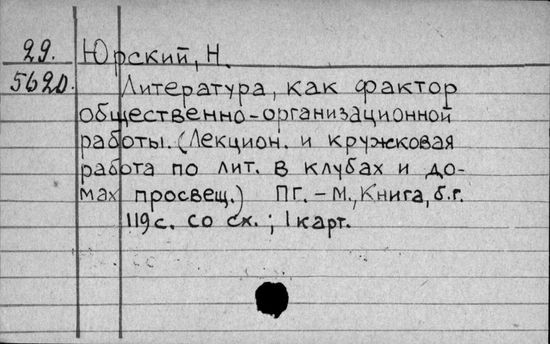 29. Юрский, Н.
5620. Литература, как фактор
общественно-организационной
работы. (Лекцион. и кружковая
работа по лит. в клубах и до-
мах просвещ.) ПГ.-М., Книга, б.г.
119 с. со сх.; 1 карт.